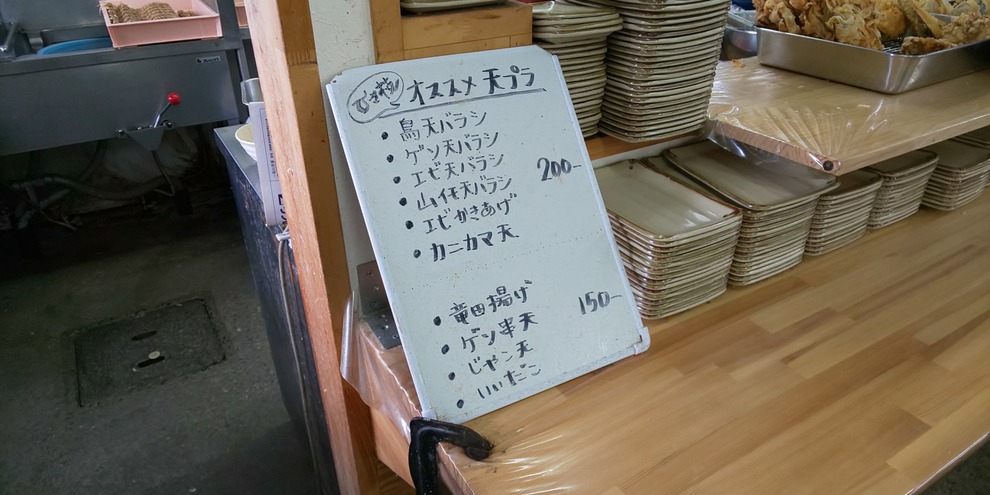 オススメ 天プラ
• 鳥天バラシ
• ゲソ天バラシ
• エビ天バラシ
200-
• 山イモ天バラシ
• エビかきあげ
• カニカマ天
• 竜田揚げ
150-
• ゲソ串天
• じゃこ天
• いいだこ